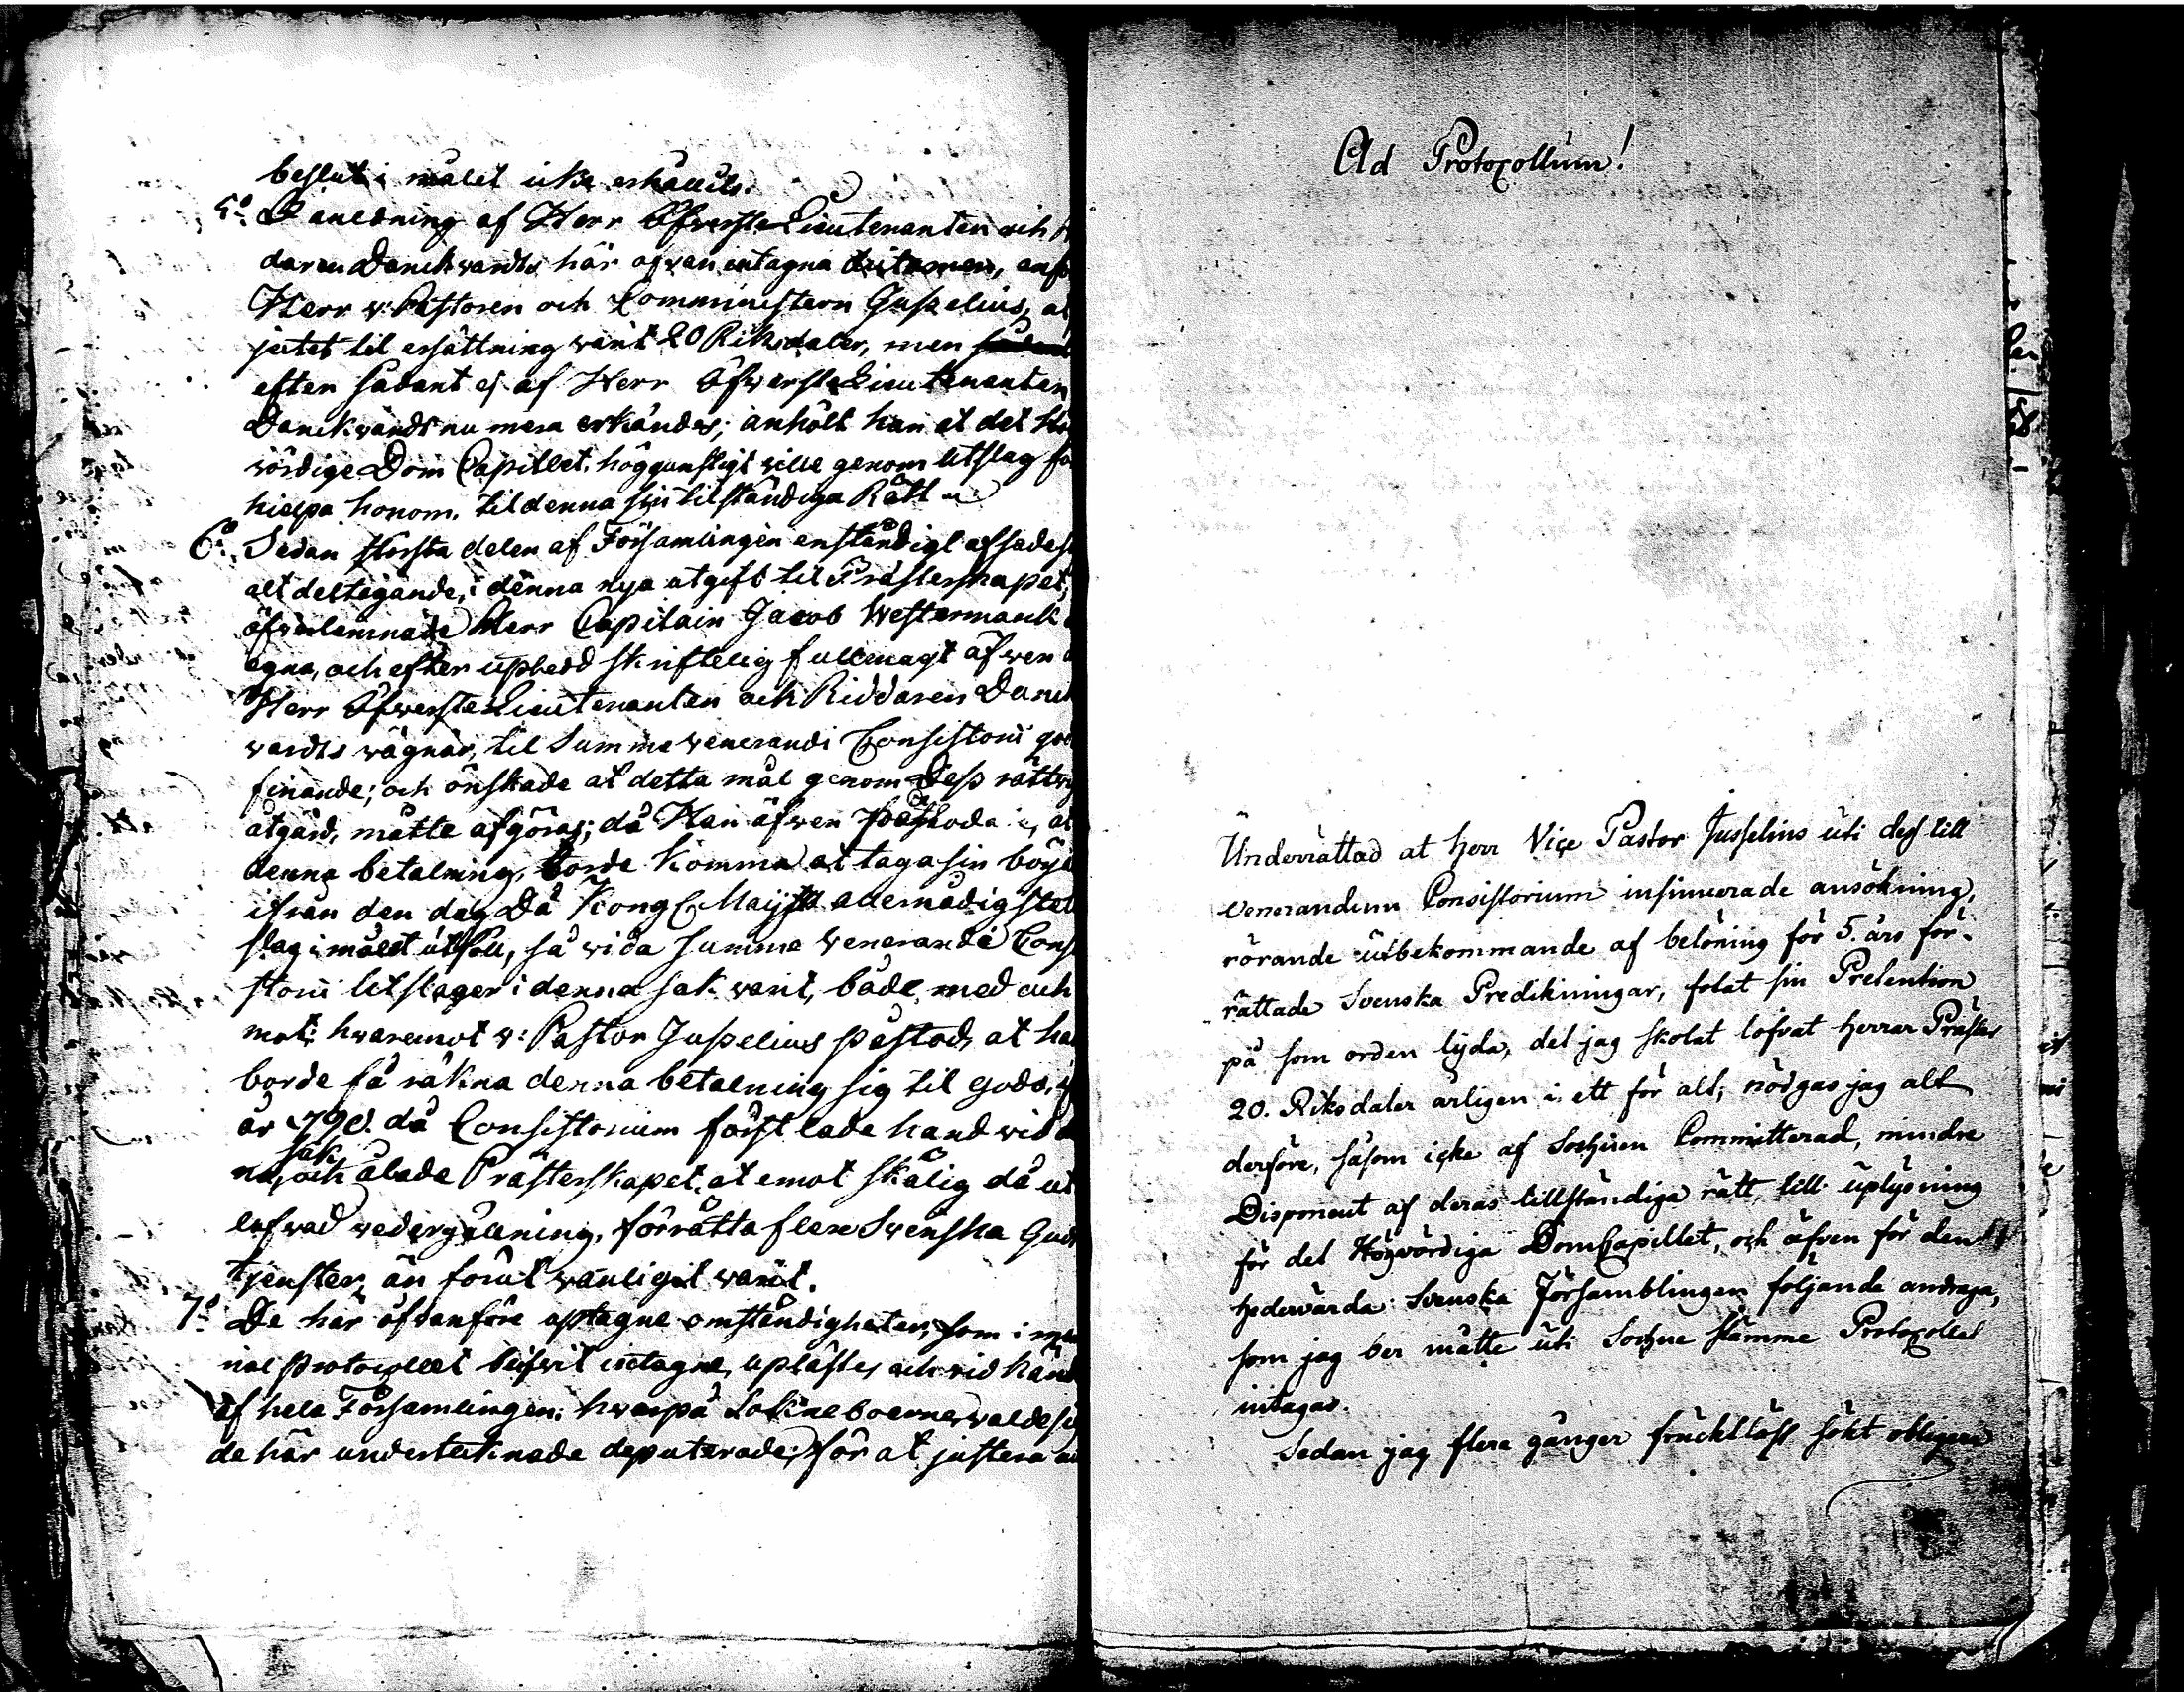 beslut i målet icke erhållits.
5o. I anledning af Herr ÖfversteLieutenanten och
daren Danckwardts här ofvan intagna dictamen,
Herr v: Pastoren och Comministern Jusselius, at
jutet til ersättning varit 20 Riksdaler, men
efter sådant ej af Herr ÖfversteLieutenanten
Danckwardt nu mera erkändes; anhölt han at det
vördige Dom Capitlet, höggunstigt ville genom Utslag
hielpa honom. til denna sin tilständiga Rätt
6o. Sedan största delen af Församlingen enständigt afsade
alt deltagande, i denna nya utgift til Prästerskapet,
öfverlemnade Herr Capitain Jacob Westermarck
egna, och efter uptedd skriftelig fullmagt äfven
Herr ÖfversteLieutenanten och Riddaren Danck
wardts vägnar, til Summe Venerandi Consistorii
finande; och önskade at detta mål genom Dess rättv
åtgärd, måtte afgöras; då Han äfven påstode, at
denna betalning, borde komma at taga sin börj
ifrån den dag Då Kongl Maijts allernådigste
slag i målet utföll, så vida Summe Venerandi Consi
storii Utslager i denna sak varit, både med och
mot; hvaremot v: Pastor Jusselius påstod, at han
borde få räkna denna betalning sig til godo,
år 1790. då Consistorium först lade hand vid
sak
na, och ålade Prästerskapet, at emot skälig då ut
lofvad vedergällning, förrätta flere Svenska Guds
tjenster, än förut vanligit varit.
7o. De här ofvanföre uptagne omständigheter, som i
rial protocollet blifvit intagne, uplästes och vid
af hela Församlingen; hvarpå Sokneboerne valde
de här undertecknade deputerade, för at justera
Ad Protocollum!
Underrättad at Herr Vice Pastor Jusselius uti dess till
Venerandum Consistorium insinuerade ansökning,
rörande utbekommande af belöning för 5. års för-
rättade Svenska Predikningar, fotat sin Pretention
på som orden lyda, det jag skolat lofvat Herrar Präster
20. Riksdaler årligen i ett för alt; nödgas jag alt
derföre, såsom icke af Sochnen Committerad, mindre
Disponent af deras tillständiga rätt, till uplysning
för det Högvördiga DomCapitlet, och äfven för den
hedervärda Svenska Församblingen följande andraga,
som jag ber måtte uti Sochne stämme Protocollet
intagas.
Sedan jag flere gånger fruchtlöst sökt obligera